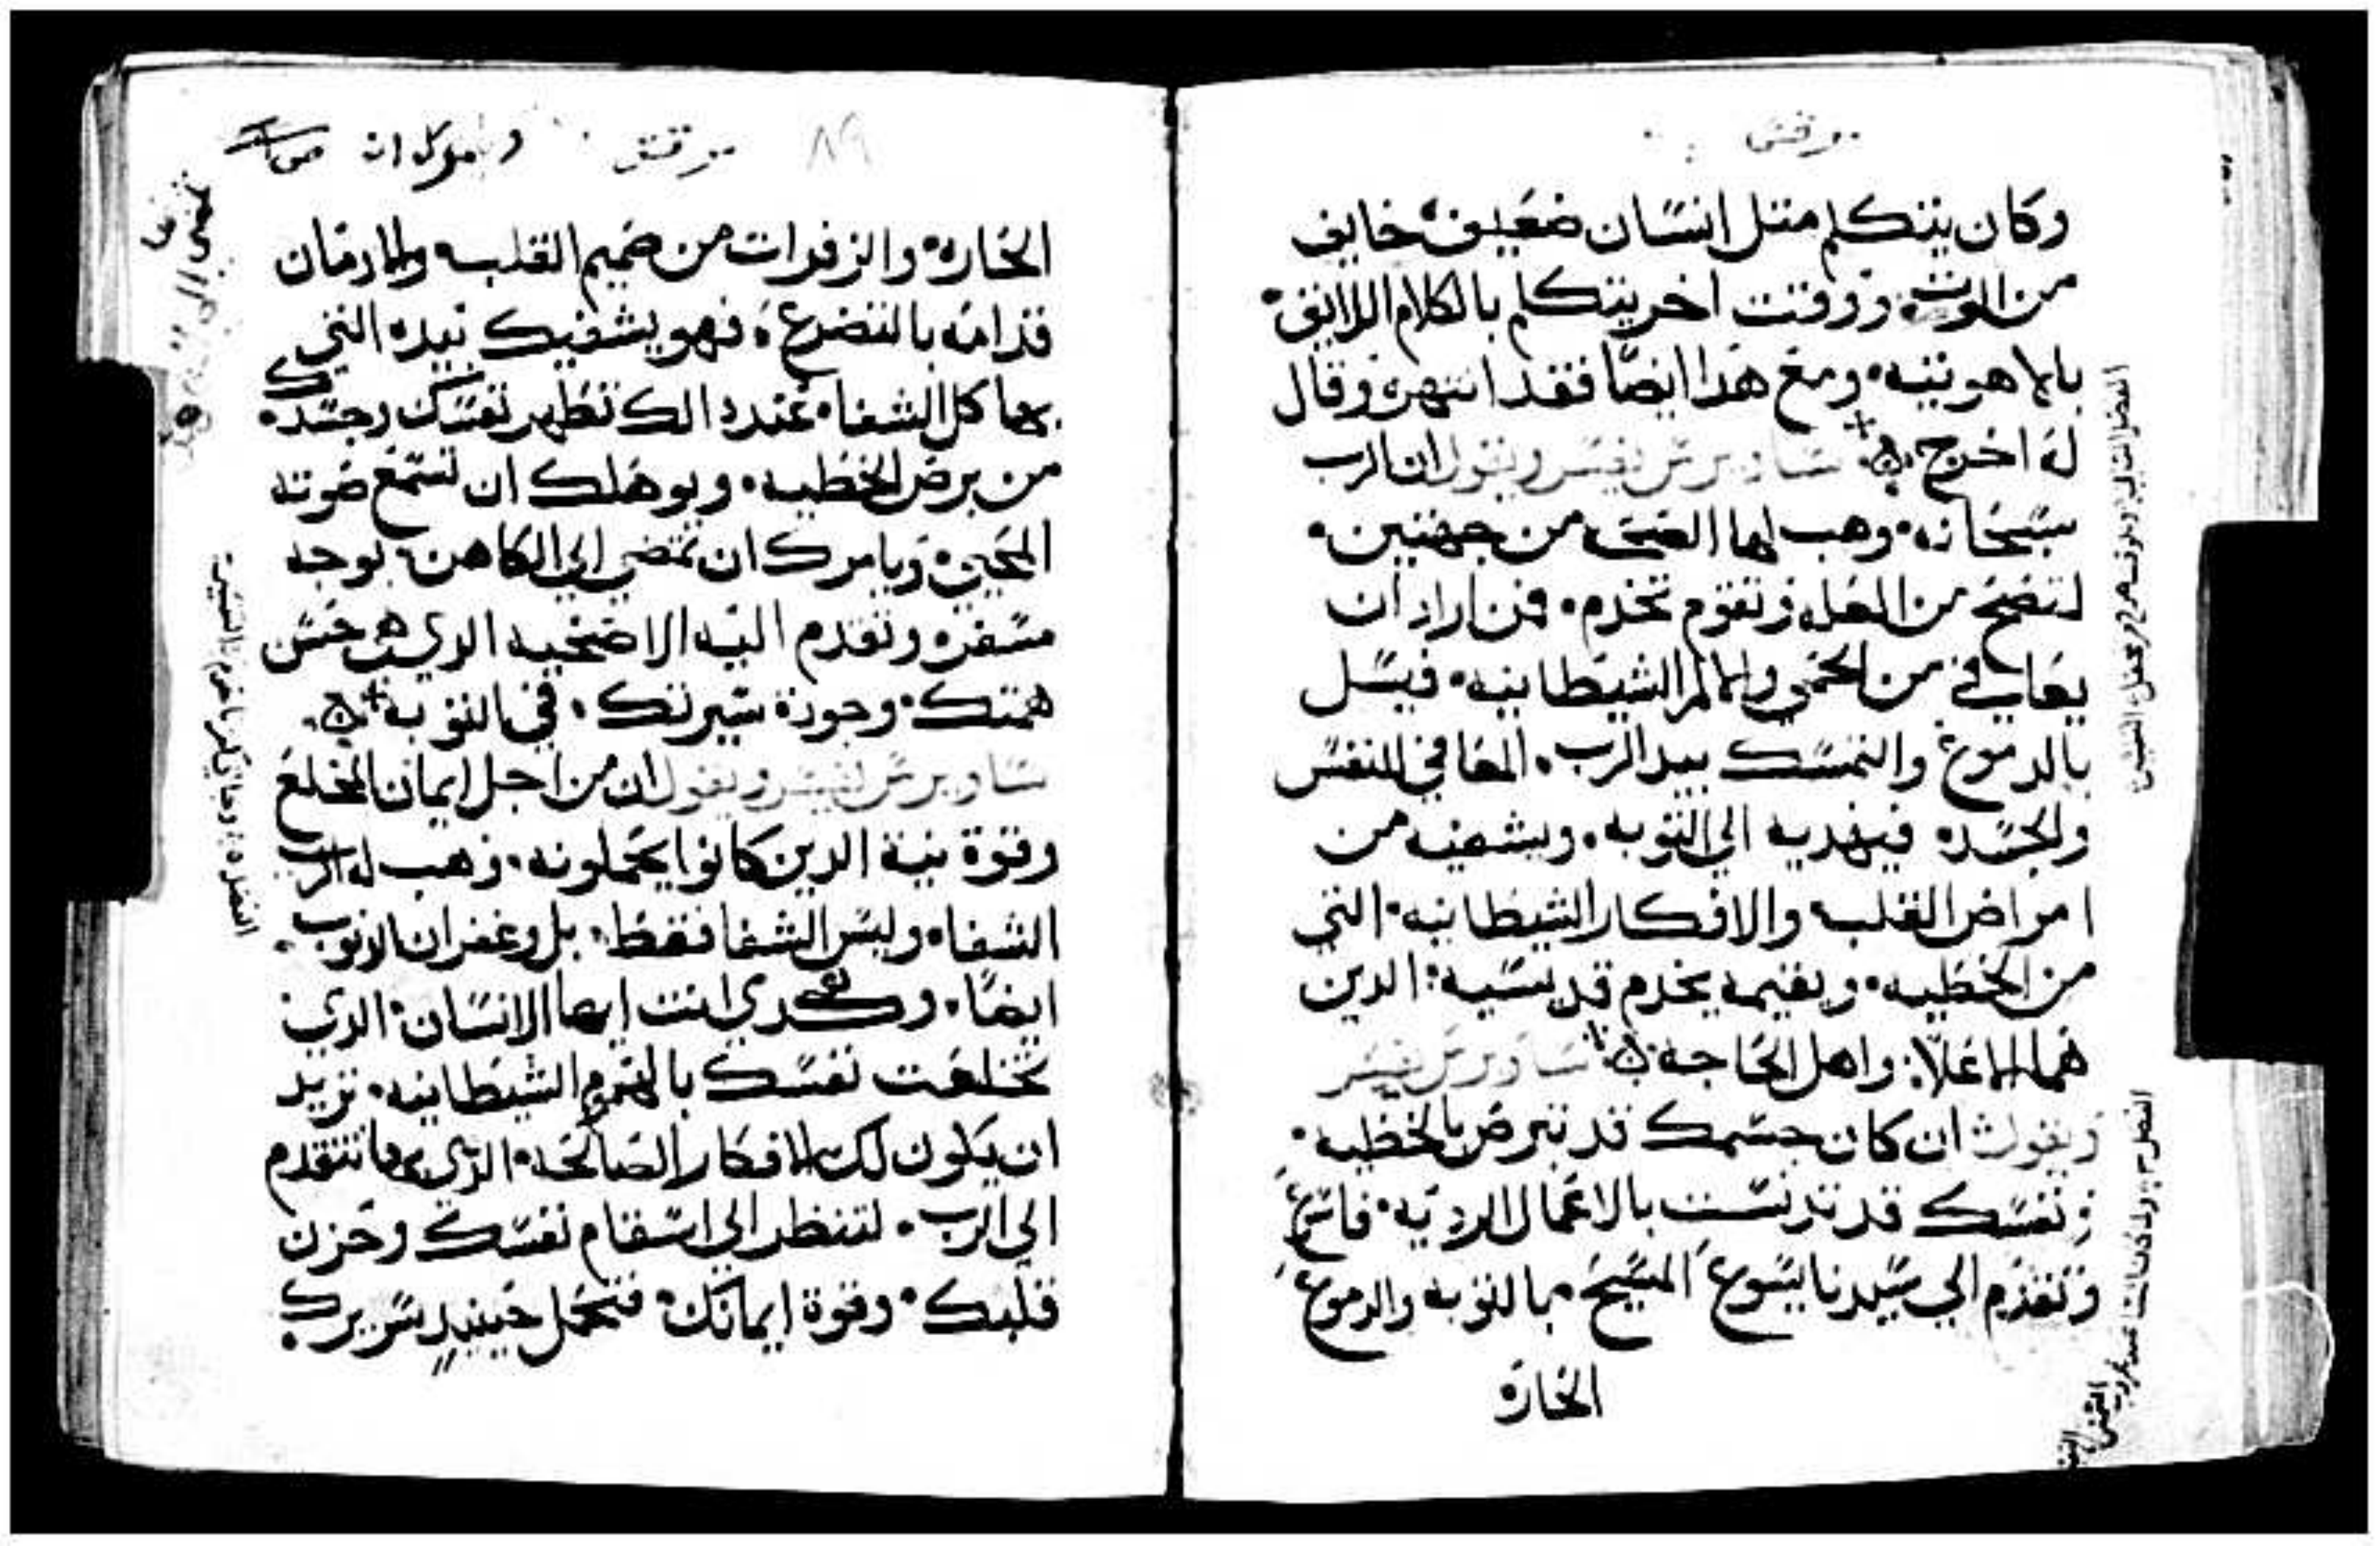 مرقس
وكان يتكلم متل انسان ضعيف خايف
من الموت ووقت اخر يتكلم بالكلام اللايق
بالاهوتيه ومع هذا ايضا فقد انتهره وقال
له اخرج ساويرس يفسر ويقول ان الرب
سبحانه وهب لها الصحه من جهتين
لتصح من العله وتقوم تخدم فمن اراد ان
يعافي من الحمي والالم الشيطانيه فيسل
بالدموع والتمسك بيد الرب المعافي للنفس
والجسد فيهديه الي التوبه ويشفيه من
امراض القلب والافكار الشيطانيه التي
من الخطيه ويقيمه يخدم قديسيه الدين
هما الاعلا واهل الحاجه ساويرس يفسر
ويقول ان كان جسمك قد تبرص بالخطيه
ونفسك قد تدنست بالاعمال الرديه فاسرع
وتقدم الي سيدنا يسوع المسيح بالتوبه والدموع
الحاره
٨٩ مرقس
الحاره والزفرات من صميم القلب والادمان
قدامه بالتضرع فهو يشفيك بيده التي
بها كل الشفا عند دالك تطهر نفسك وجسدك
من برص الخطيه ويوهلك ان تسمع صوته
المحيي ويامرك ان تمضي الي الكاهن بوجه
مسفره وتقدم اليه الاضحيه الدي هي حسن
همتك وجودة سيرتك في التوبه
ساويرس يفسر ويقول ان من اجل ايمان المخلع
وقوة نية الدين كانوا يحملونه وهب له الرب
الشفا وليس الشفا فقط بل وغفران الدنوب
ايضا وكدي انت ايها الانسان الدي
تخلعت نفسك بالهموم الشيطانيه تريد
ان يكون لك الافكار الصالحه الدي بها تتقدم
الي الرب لتنظر الي اسقام نفسك وحزن
قلبك وقوة ايمانك فتحمل حينيد سريرك